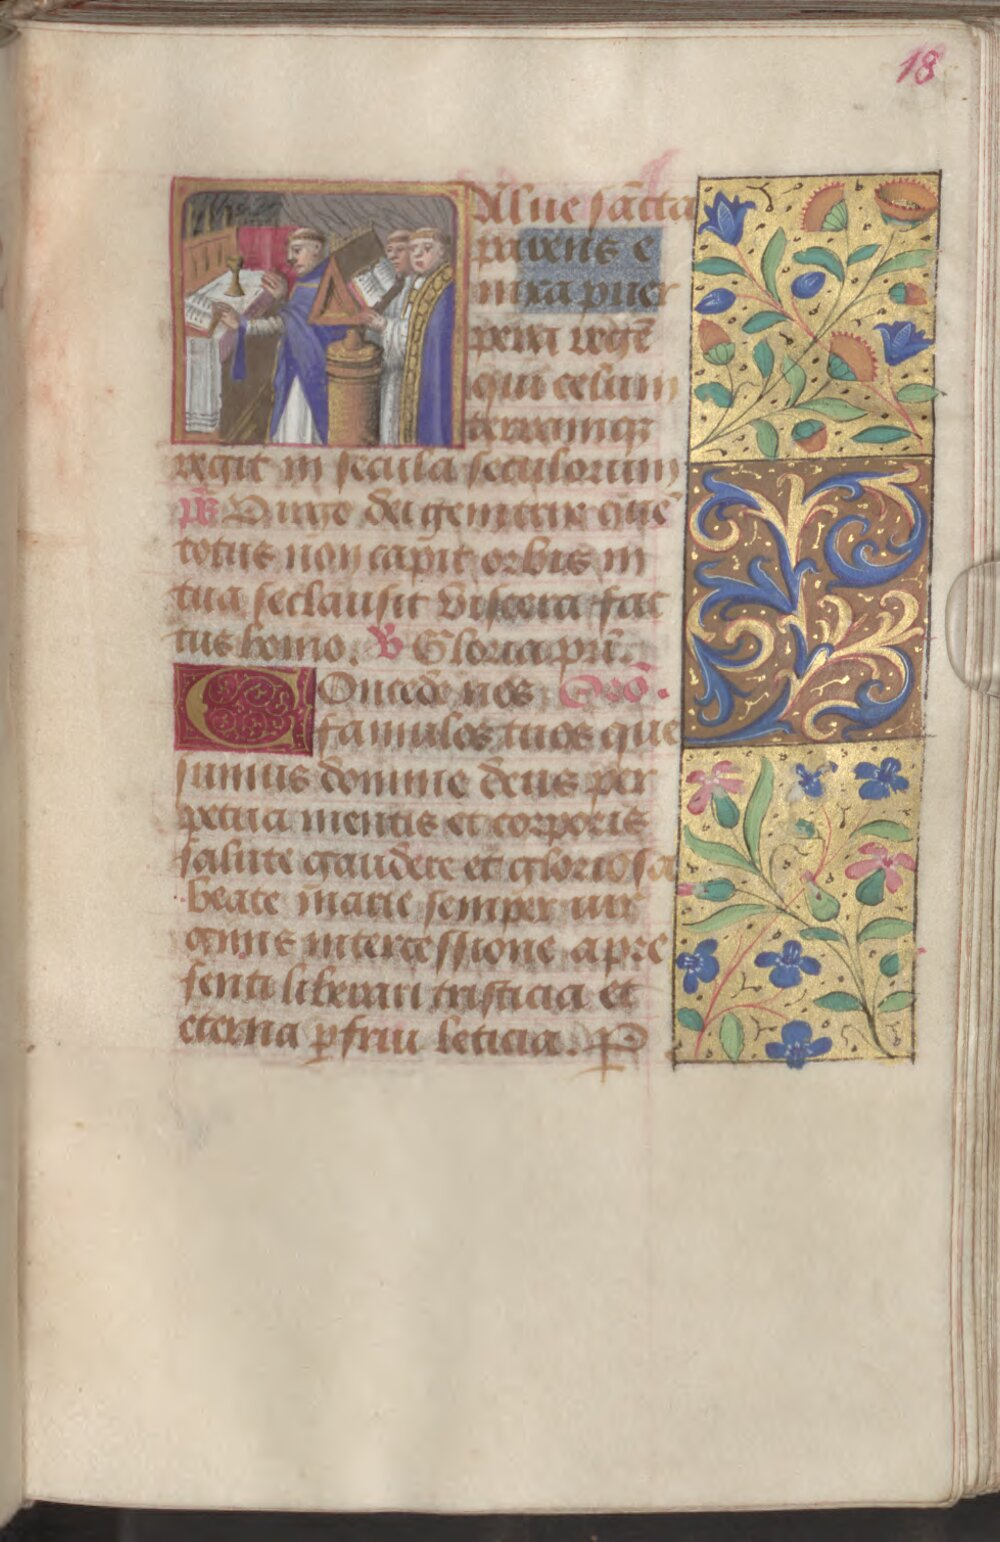 18
Alue sācta
parens e
nixa puer
pera regē
qui celum
terramqꝫ
regit in secula seculorum
p̄s Uirgo dei genitrix quē
totus non capit orbis in
tua se clausit viscera fac
tus homo. V̄ Gloria pr̄i.
Concede nos Orō.
famulos tuos que
sumus domine deus per
petua mentis et corporis
salute gaudere et gloriosa
beate marie semper uir
ginis intercessione a pre
senti liberari tristicia et
eterna ꝑfrui leticia. P